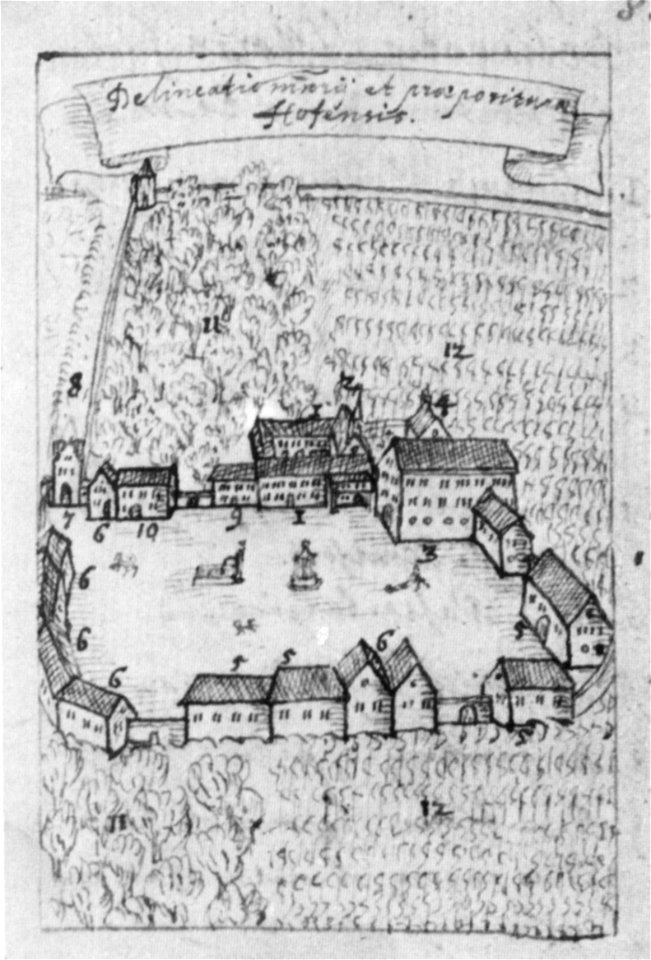 Delineatio mrii et præpositurae
Hofensis.
11
12
8
1
2
4
7
6
10
9
1
3
6
6
6
5
5
6
5
5
11
12